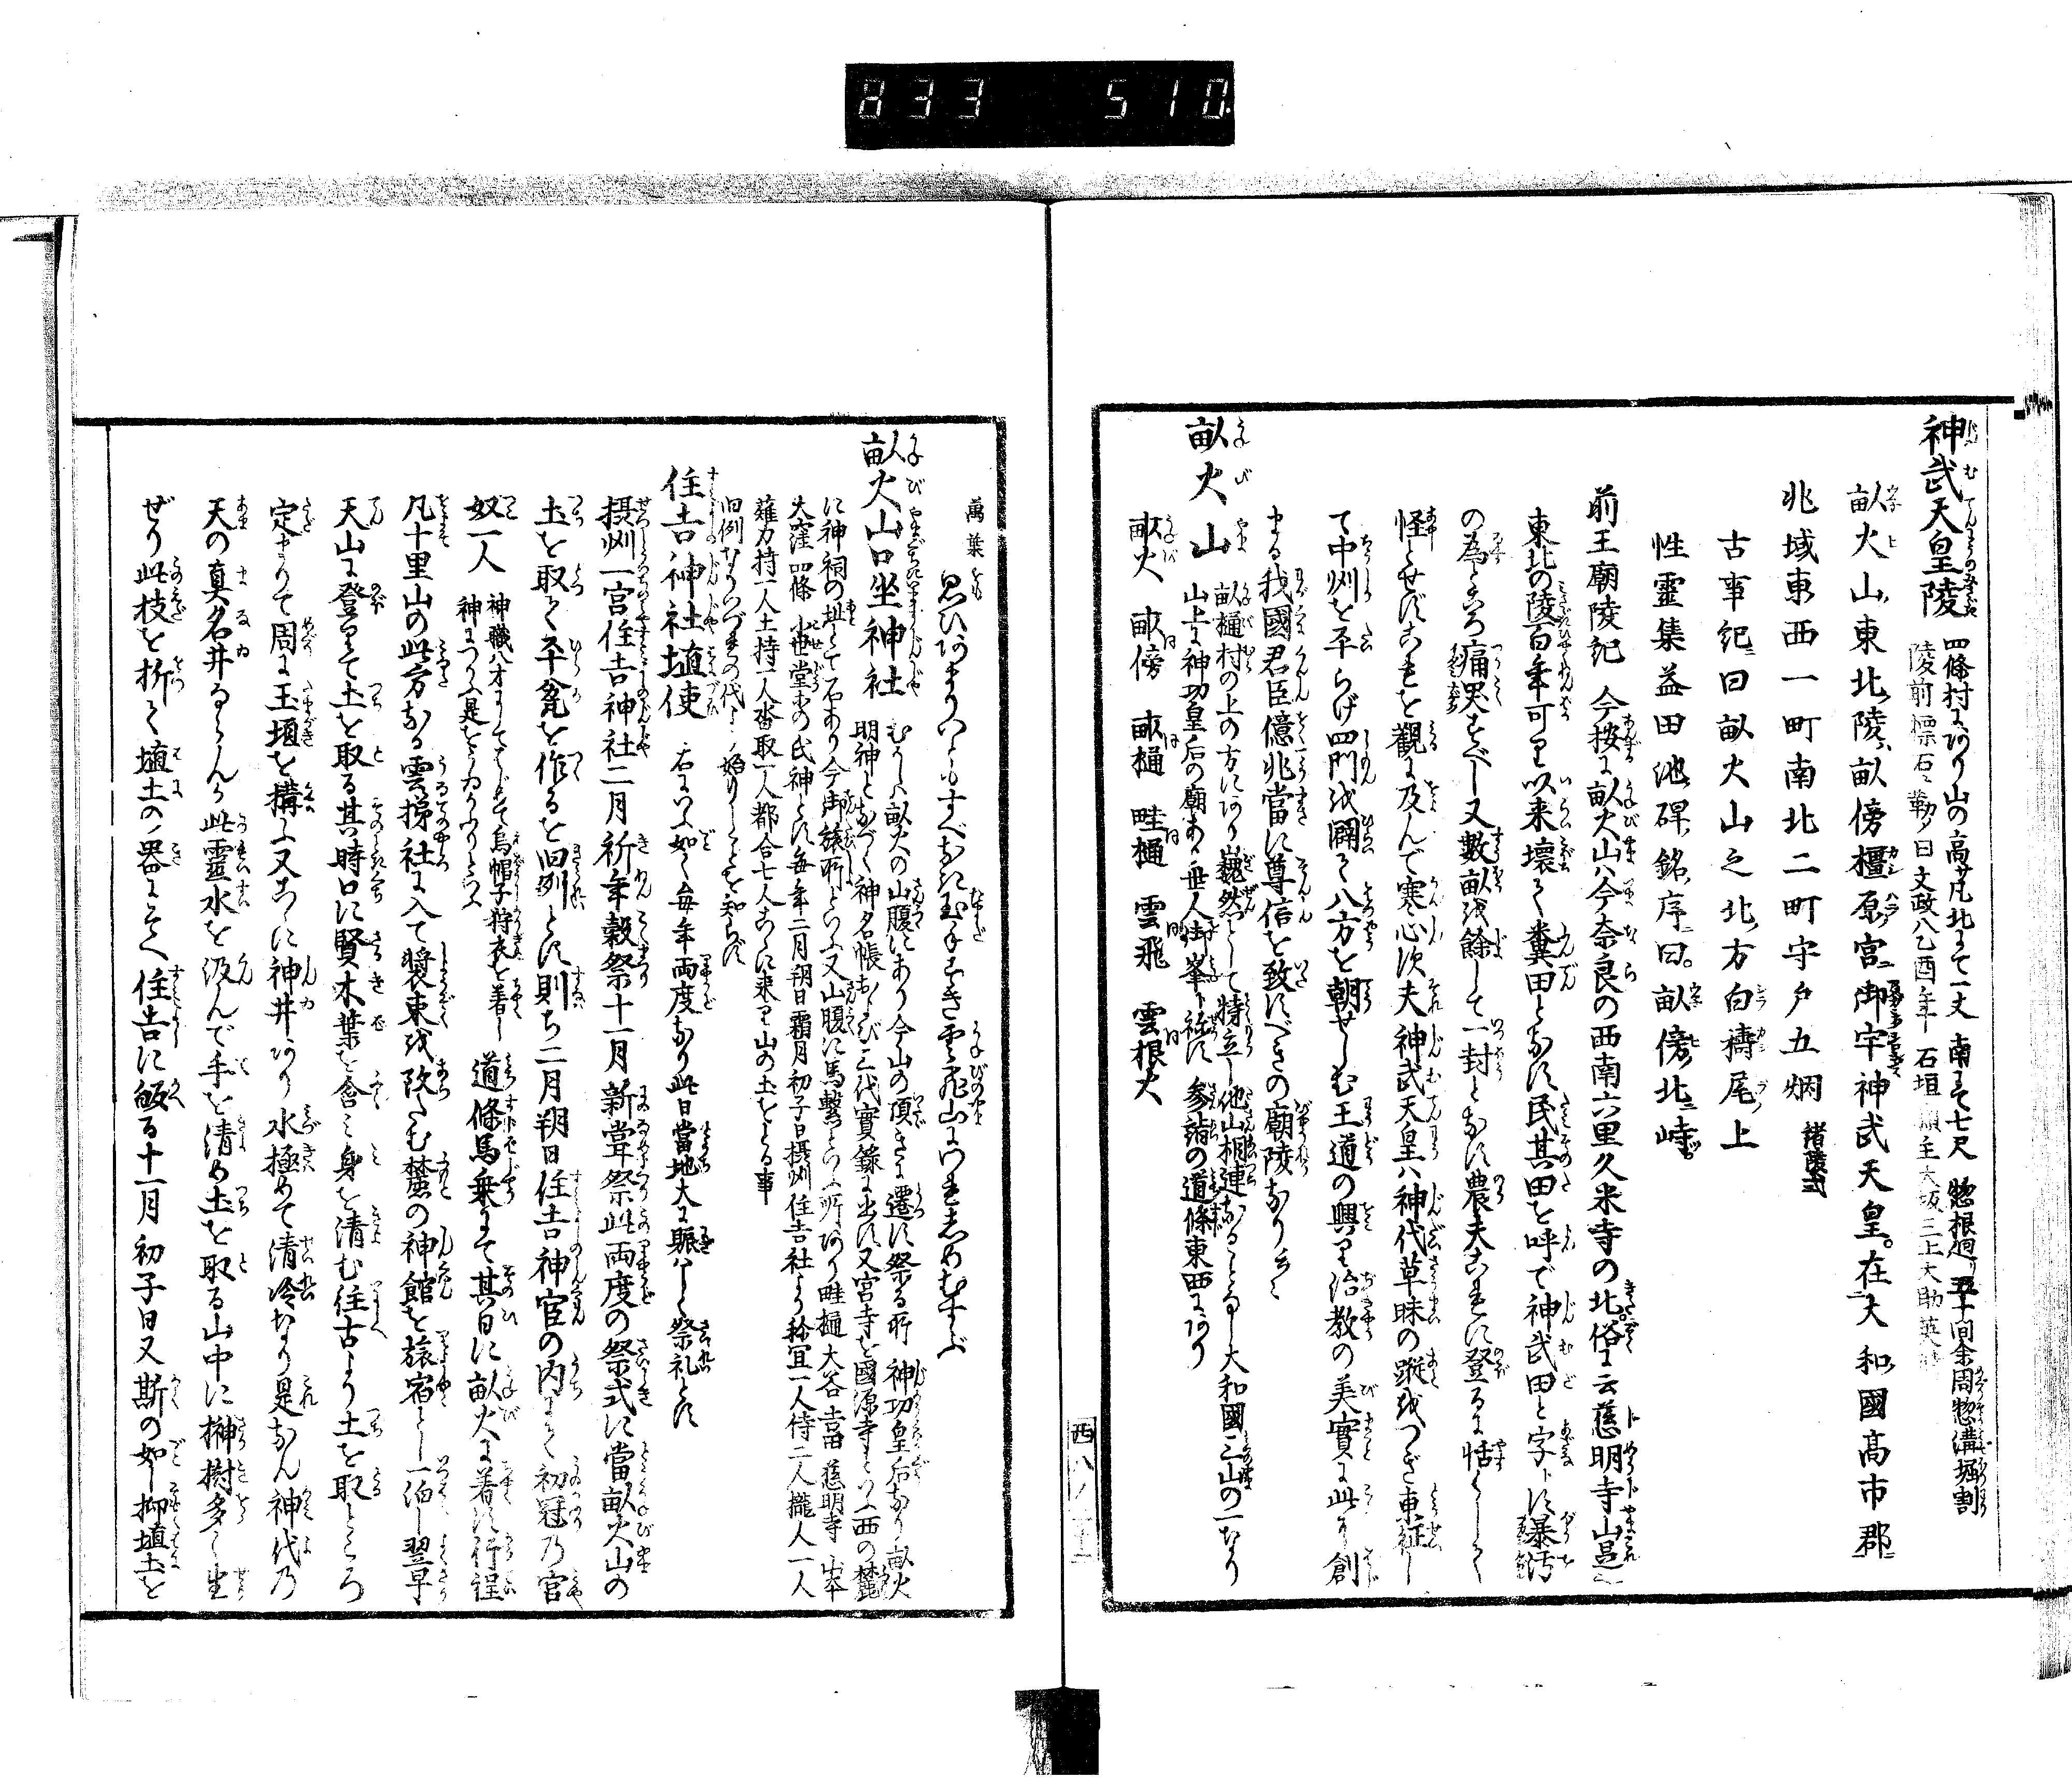 833 510
神武天皇陵 四條村にあり山の高サ凡北にて一丈 南にて七尺 惣根廻リ五十間余周惣溝堀割
陵前標石ニ勒メ曰文政八乙酉年 石垣 願主大坂三上大助英時
畝火山東北陵畝傍橿原宮御宇神武天皇在大和國高市郡
兆域東西一町南北二町守戸五烟 諸陵式
古事紀曰畝火山之北方白檮尾上
性靈集益田池碑銘序曰畝傍北峙
前王廟陵記 今按に畝火山ハ今奈良の西南六里久米寺の北俗に云慈明寺山是
東北の陵百年可り以来壊て糞田となす民其田を呼で神武田と字す暴汚
の為ところ痛哭すべし又數畝を餘して一封となす農夫これに登るに恬として
怪とせずこれを觀に及んで寒心す夫神武天皇ハ神代草昧の蹤をつぎ東征し
て中州を平らげ四門を闢て八方を朝せしむ王道の興り治教の美實に此に創
まる我國君臣億兆當に尊信を致すべきの廟陵なり云々
畝火山 畝樋村の上の方にあり巍然として特立し他山相連なることなし大和國三山の一なり
山上に神功皇后の廟あり土人御峯ト称す 参詣の道條東西にあり
畝火 畝傍 畝樋 畦樋 雲飛 雲根火
萬葉 思ひあまりいともすべなみ玉手すき雲飛山にわれしめむすぶ
畝火山口坐神社 むかしハ畝火の山腹にあり今山の頂きに遷す祭る所 神功皇后なり畝火
明神となづく神名帳および三代實録に出す又宮寺を國源寺といふ西の麓
に神祠の址とて石あり今御旅所といふ又山腹に馬繋といふ所あり畦樋 大谷 吉田 慈明寺 山本
大窪 四條 小世堂等の氏神とす毎年二月朔日霜月初子日摂州住吉社より祢宜一人侍二人籠人一人
薙刀持一人土持一人沓取一人都合七人こゝに来り山の土をとる事
旧例なりいづれの代より始りしことを知らず
住吉神社埴使 右にいふ如く毎年両度なり此日當地大に賑ハしく祭礼とす
摂州一宮住吉神社二月祈年穀祭十一月新甞祭此両度の祭式に當畝火山の
土を取て平瓮を作るを旧例とす則ち二月朔日住吉神官の内にて初冠乃官
奴一人 神職八才にしてはじめて烏帽子狩衣を着し
神につかふ是をうゐかうふりといふ 道條馬乗にて其日に畝火に着す行程
凡十里山の此方なる雲梯社に入て装束を改む麓の神館を旅宿とし一泊し翌早
天山に登りて土を取る其時口に賢木葉を含ミ身を清む往古より土を取ところ
定まりて周に玉垣を構ふ又こゝに神井あり水極めて清冷なり是なん神代乃
天の真名井ならんか此靈水を汲んで手を清め土を取る山中に榊樹多く生
ぜり此枝を折て埴土の器にそへ住吉に皈る十一月初子日又斯の如し抑埴土を